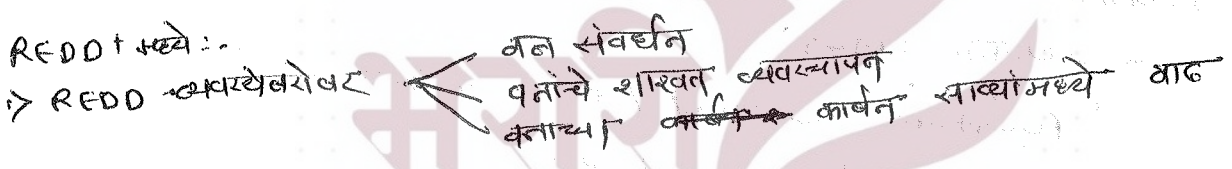 REDD+ मध्ये :-
i> REDD व्यवस्थेबरोबर
वन संवर्धन
वनांचे शाश्वत व्यवस्थापन
वनाच्या कार्बन साठ्यांमध्ये वाढ